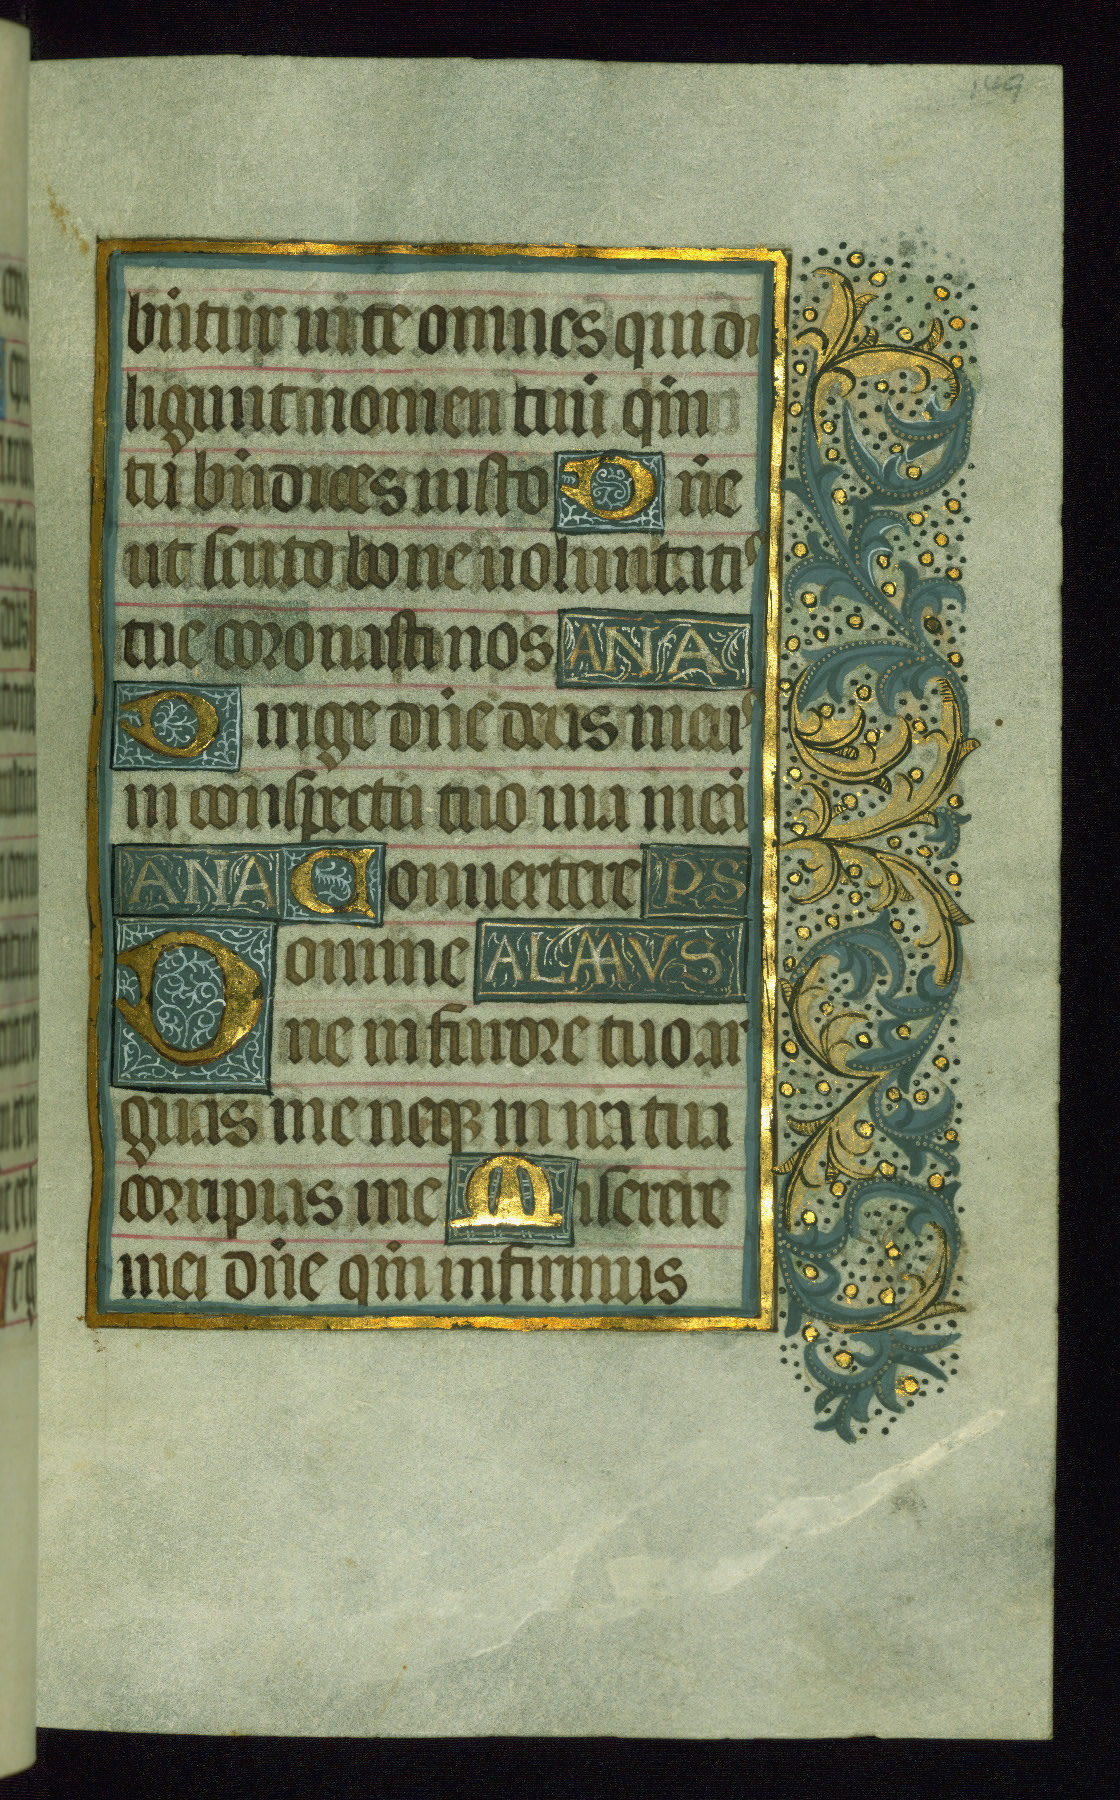 149
bu̅tur in te omnes qui di
ligunt nomen tuu̅ qm̅
tu bn̅dices iusto Dn̅e
ut scuto bone uoluntatis
tue coronasti nos ANA
Dirige dn̅e deus meus
in conspectu tuo uia mea̅
ANA Conuertere PS
Domine ALMVS
ne in furore tuo ar
guas me neqꝫ in ira tua
corripias me Miserere
mei dn̅e qm̅ infirmus